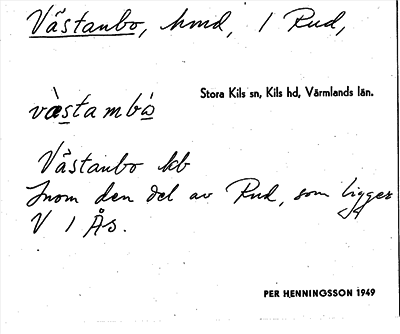 Västanbo, hmd, i Rud,
Stora Kils sn, Kils hd, Värmlands län.
væ̀stambò
Västanbo kb
Inom den del av Rud, som ligger
V i Ås.
PER HENNINGSSON 1949